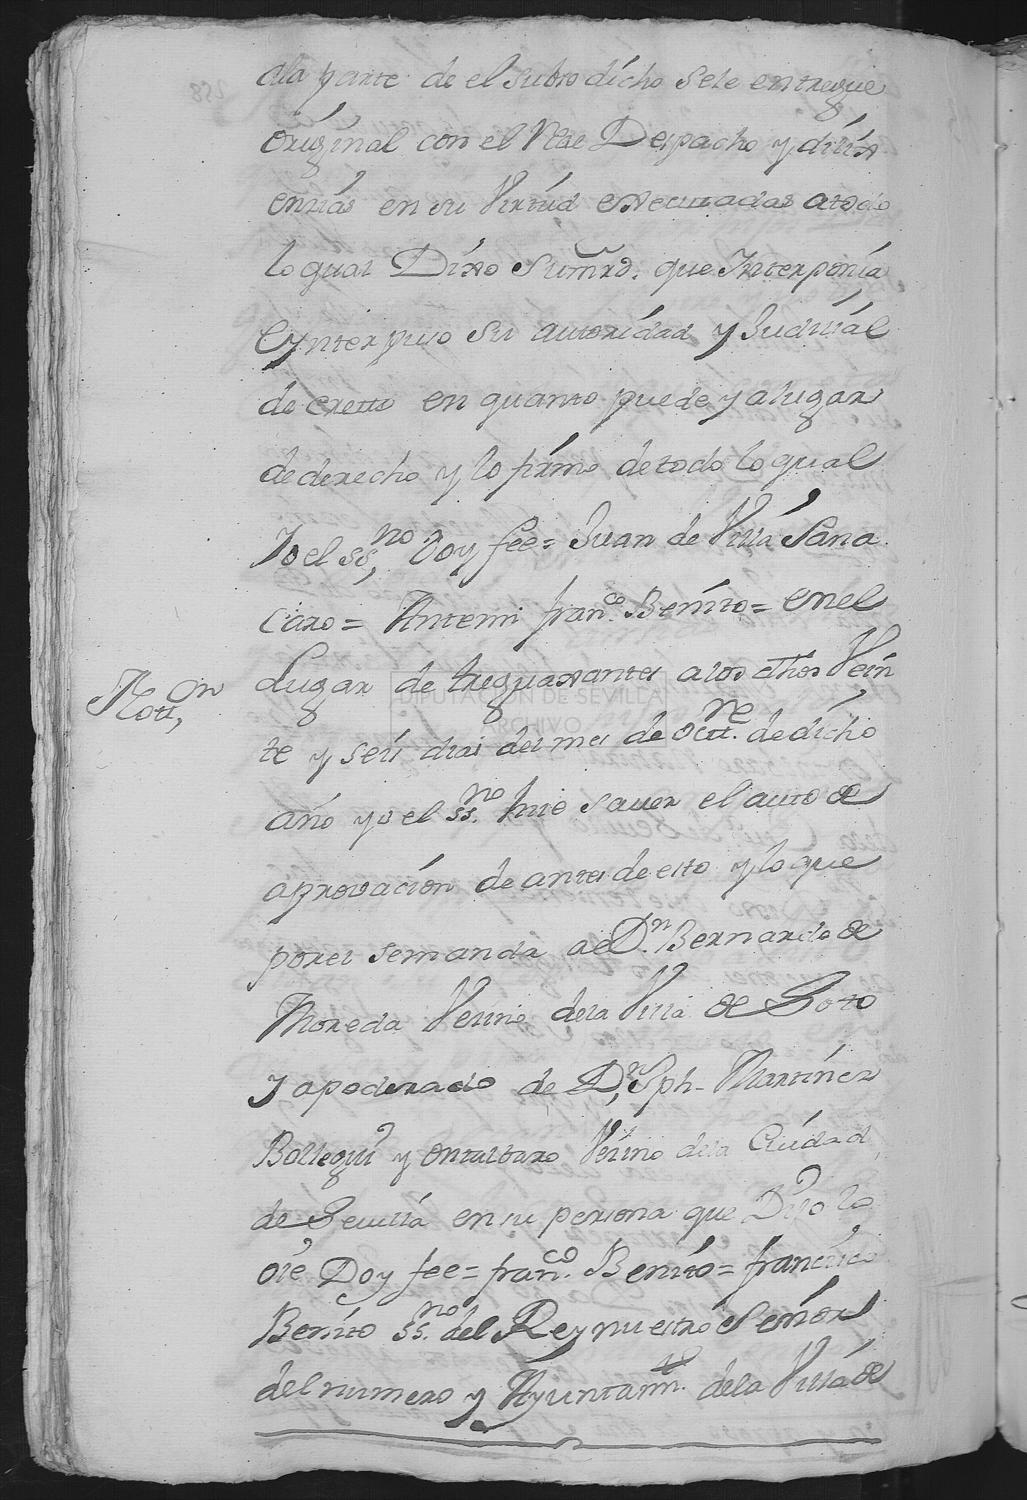 ala parte de el subso dicho sele entregue
original con el Nre Despacho y dilix
enzias en su Virtud executadas atodo
lo qual Dixo Sumrd. que Interponia
eynterpuso su autoridad y Judizial
decretto en quanto puede y a lugar
de derecho y lo firmo de todo lo qual
Yo el ssno. doy fee = Juan de Villa Sana
Caro = Antemi franco. Benito = en el
Nottn
Lugar de treguaxantes alos dhos Vein
te y seis dias del mes de octtre. de dicho
año yo el ssno. hize saver el auto de
aprovacion de antes de esto y lo que
por el semanda a Dn. Bernardo de
Moreda Vezino de la Villa de Soto
y apoderado de Dn. Jph. Martinez
Bollegui y Vezino de la Ciudad
de Sevilla en su persona que Dijo lo
oie Doy fee = franco. Benito = francisco
Benito ssno. del Rey nuestro Señor
del numero y Ayuntamto. dela Villa de
DIPUTACIÓN DE SEVILLA
ARCHIVO